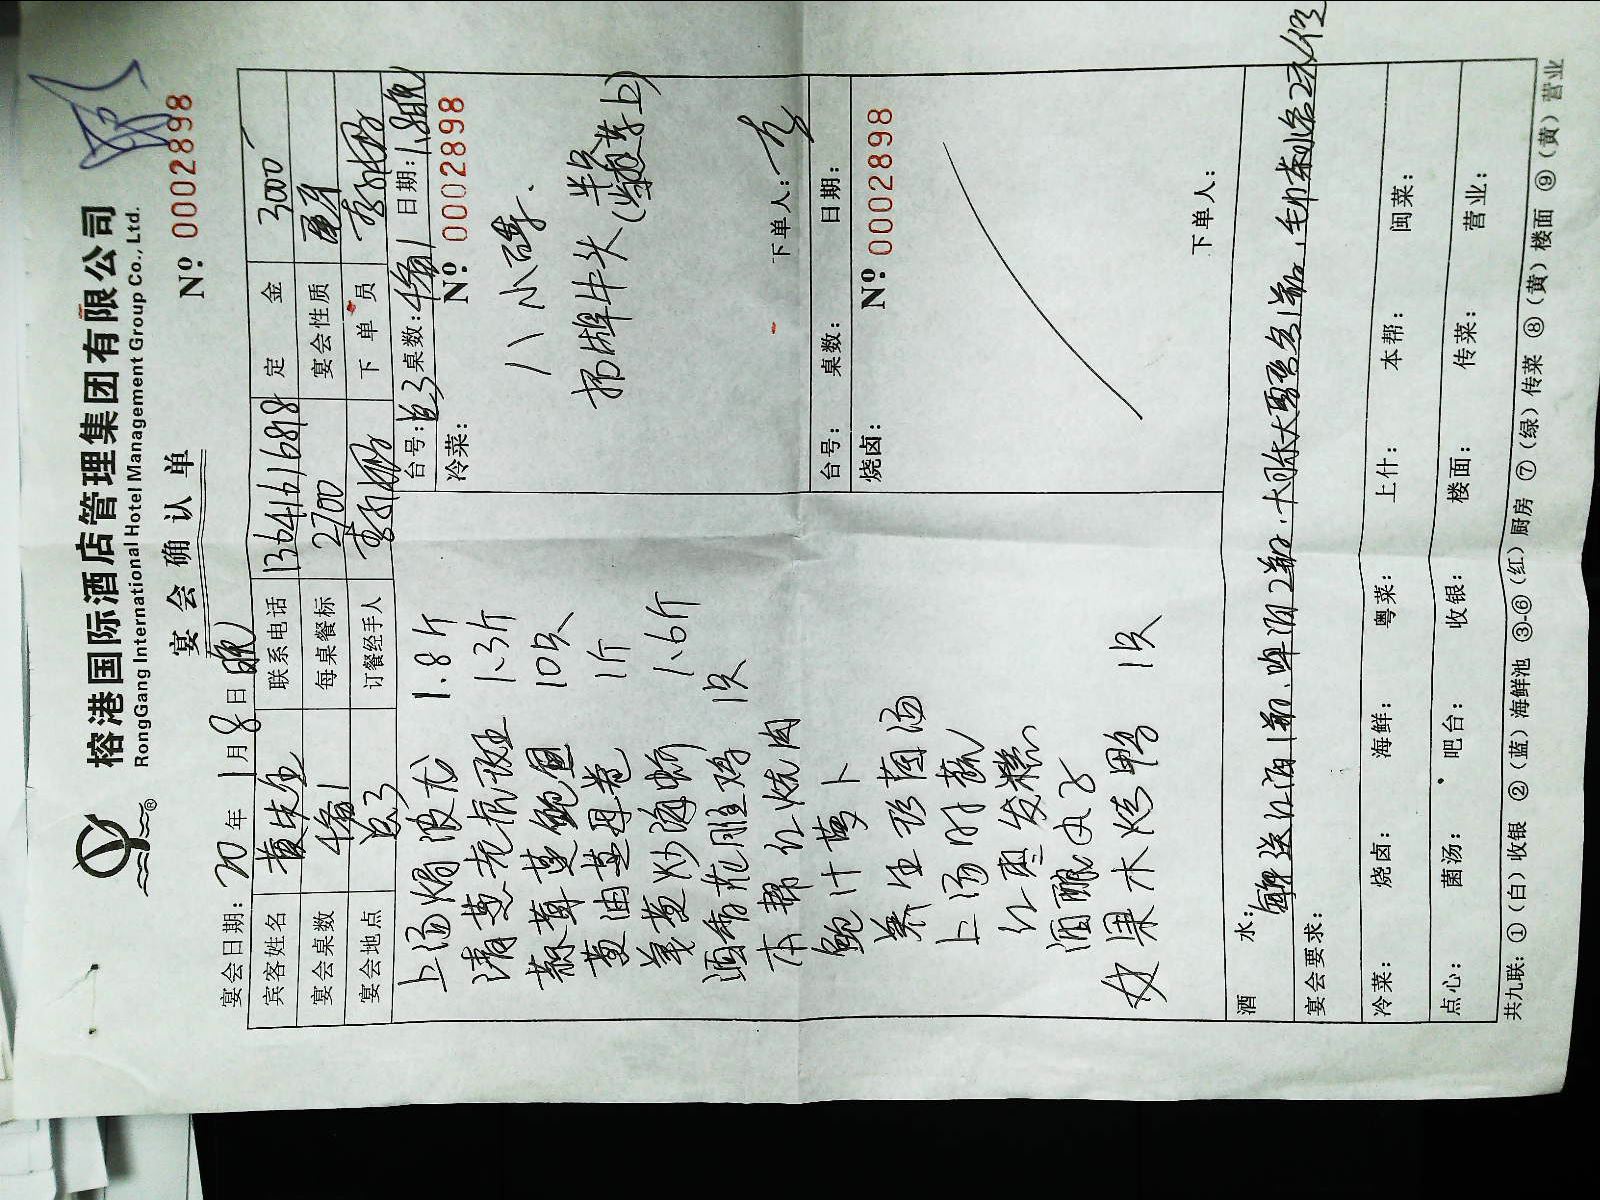 榕港国际酒店管理集团有限公司
RongGang International Hotel Management Group Co., Ltd.
宴会确认单
№ 0002898
宴会日期: 20年1月8日晚
宾客姓名 联系电话 13641616818 定金 3000
宴会桌数 每桌餐标 2700 宴会性质
宴会地点 订餐经手人 下单员
上汤焗波龙 1.8斤
清蒸老虎斑 1.3斤
蒜茸蒸鲍鱼 10只
1斤
姜葱炒海蟹 1.6斤
酒香花雕鸡 1只
本帮红烧肉
鲍汁萝卜
养生珍菌汤
上汤时蔬
红枣发糕
酒酿丸子
果木烤鸭 1只
台号: 桌数: 日期: 1.8晚
冷菜: № 0002898
八小碟.
下单人:
台号: 桌数: 日期:
烧卤: № 0002898
下单人:
酒水:
宴会要求:
冷菜: 烧卤: 海鲜: 粤菜: 上什: 本帮: 闽菜:
点心: 菌汤: 吧台: 收银: 楼面: 传菜: 营业:
共九联: ①(白)收银 ②(蓝)海鲜池 ③-⑥(红)厨房 ⑦(绿)传菜 ⑧(黄)楼面 ⑨(黄)营业